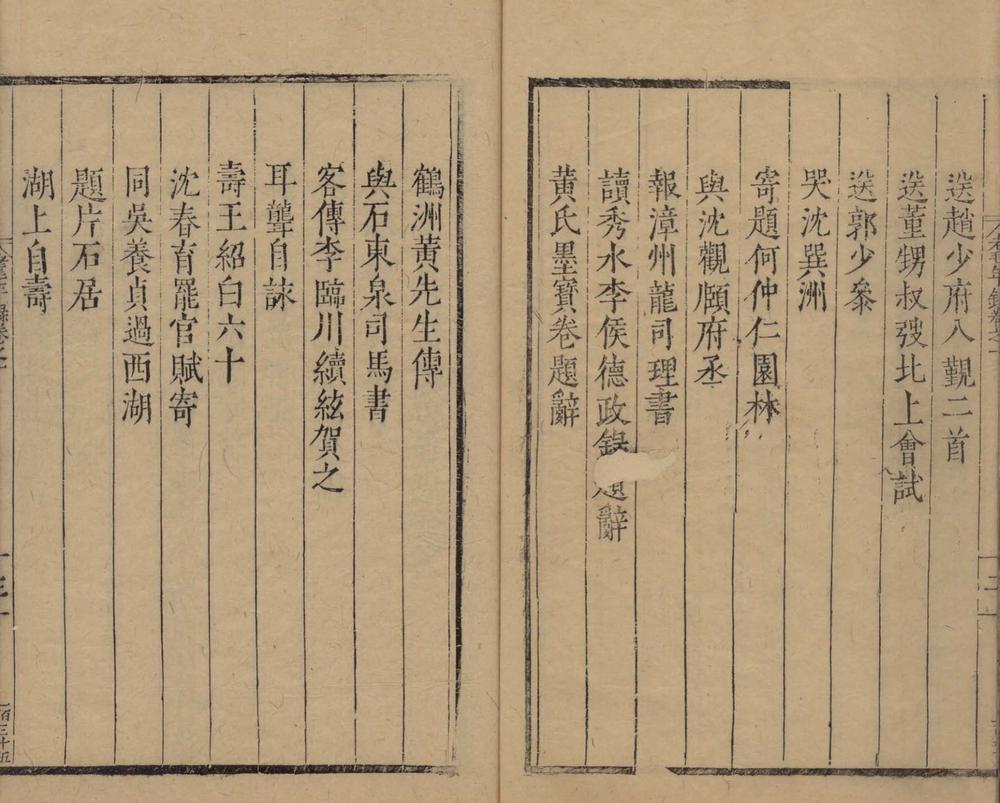 送趙少府入覲二首
送董甥叔弢北上會試
送郭少叅
哭沈巽洲
寄題何仲仁園林
與沈觀頤府丞
報漳州龍司理書
讀秀水李侯德政錄題辭
黃氏墨寳卷題辭
鶴洲黃先生傳
與石東泉司馬書
客傳李臨川續絃賀之
耳聾自誄
壽王紹白六十
沈春育罷官賦寄
同吳養貞過西湖
題片石居
湖上自壽
一百三十五